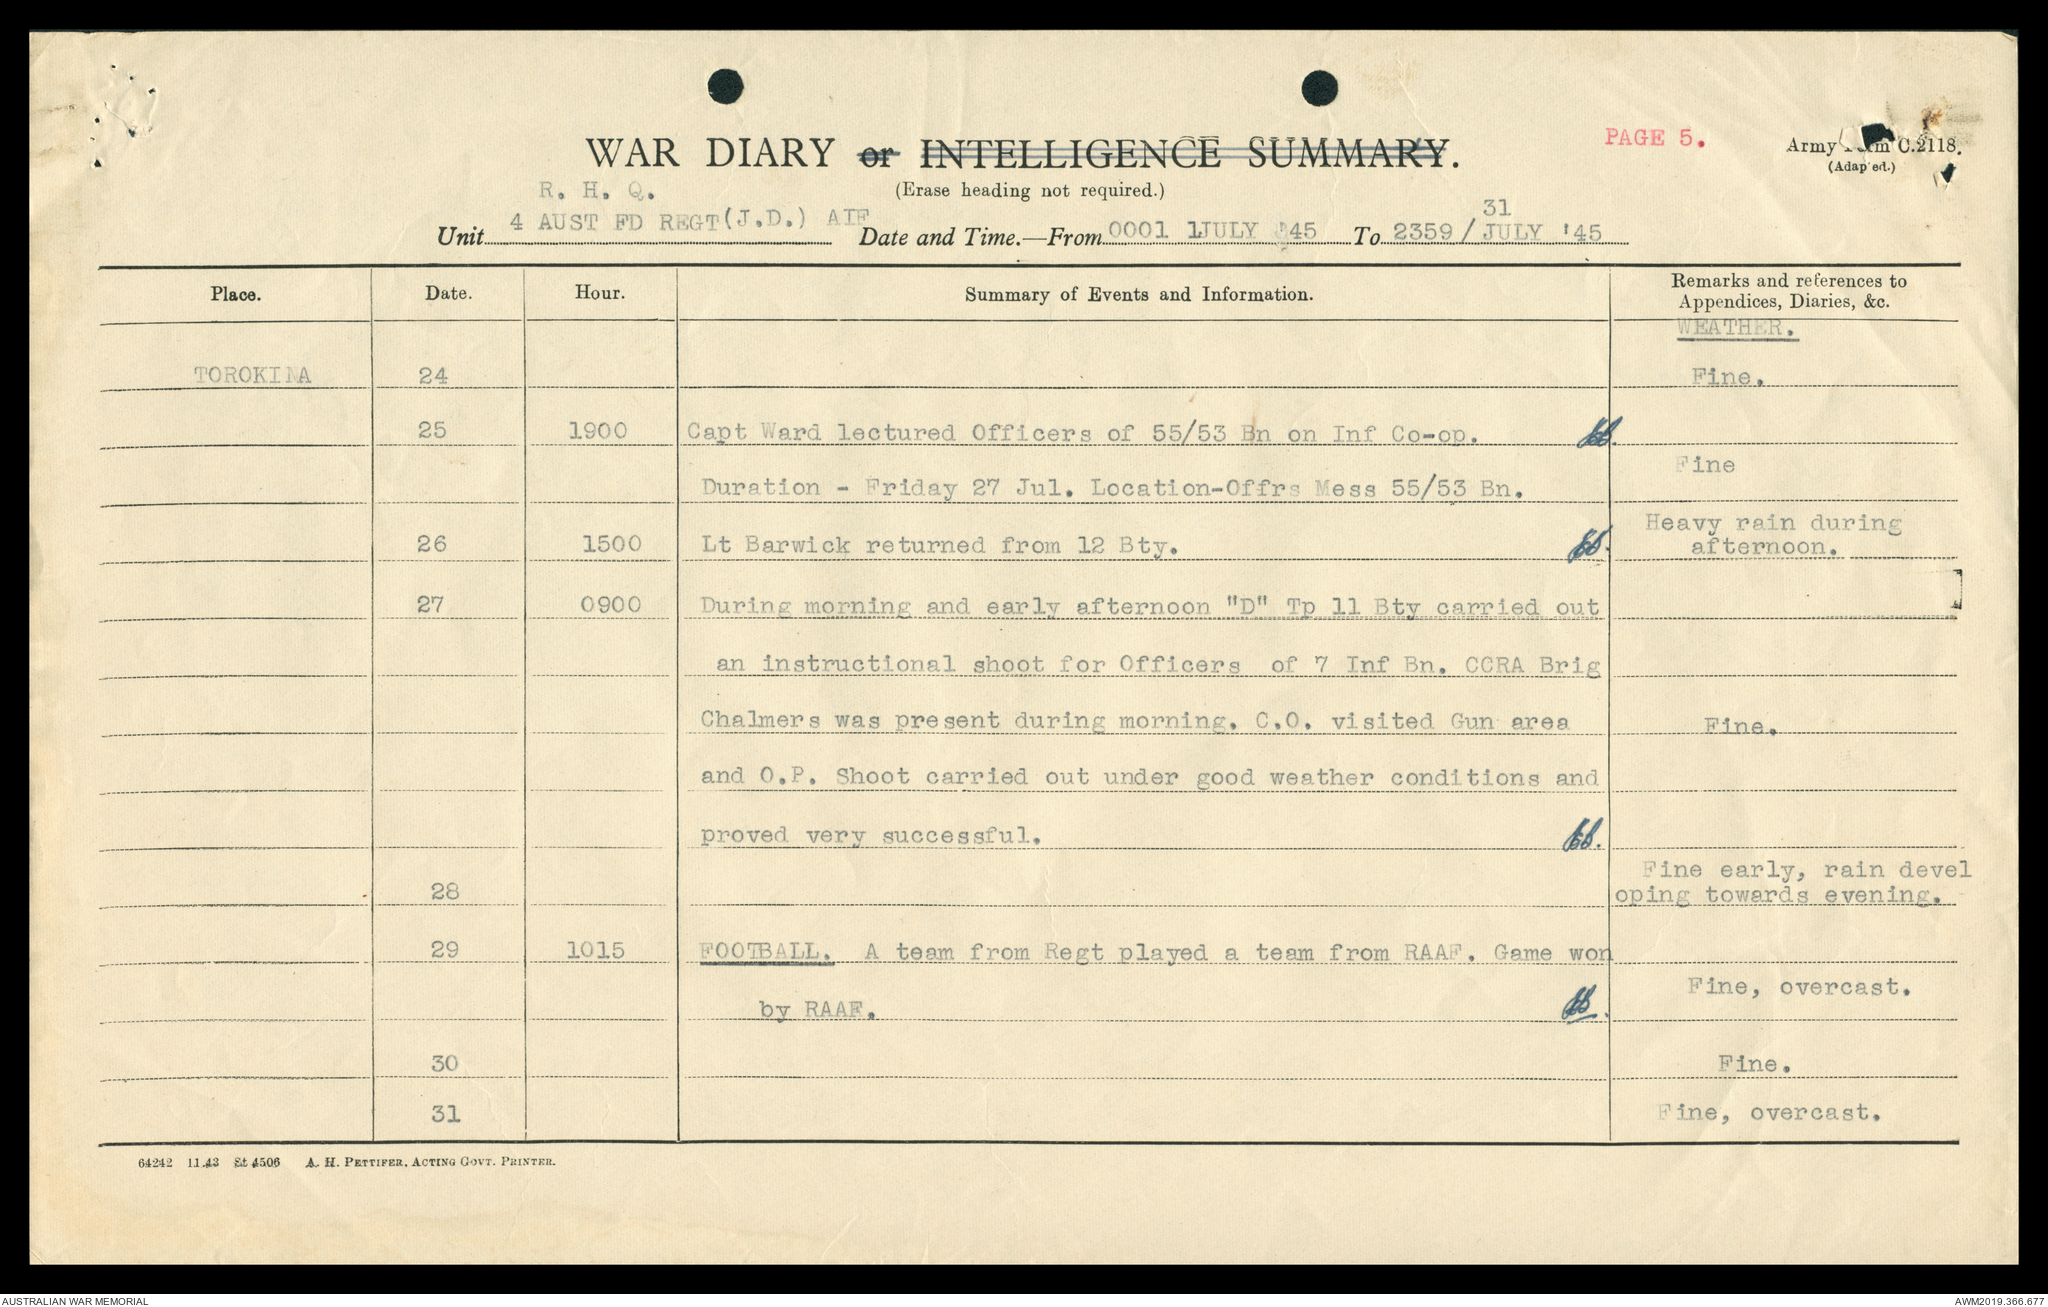 PAGE 5.
WAR DIARY or INTELLIGENCE SUMMARY.
Army Form C.2118.
(Adapted.)
(Erase heading not required.)
R. H. Q.
Unit 4 AUST FD REGT (J.D.) AIF Date and Time.—From 0001 1JULY '45 To 2359/31 JULY '45
Place. Date. Hour. Summary of Events and Information. Remarks and references to Appendices, Diaries, &c.
WEATHER.
TOROKINA 24 Fine.
25 1900 Capt Ward lectured Officers of 55/53 Bn on Inf Co-op.
Fine
Duration - Friday 27 Jul. Location-Offrs Mess 55/53 Bn.
26 1500 Lt Barwick returned from 12 Bty. Heavy rain during
afternoon.
27 0900 During morning and early afternoon "D" Tp 11 Bty carried out
an instructional shoot for Officers of 7 Inf Bn. CCRA Brig
Chalmers was present during morning. C.O. visited Gun area Fine.
and O.P. Shoot carried out under good weather conditions and
proved very successful.
28 Fine early, rain devel
oping towards evening.
29 1015 FOOTBALL. A team from Regt played a team from RAAF. Game won
Fine, overcast.
by RAAF.
30 Fine.
31 Fine, overcast.
64242 11.43 St 4506 A. H. PETTIFER, ACTING GOVT. PRINTER.
AUSTRALIAN WAR MEMORIAL AWM2019.366.677